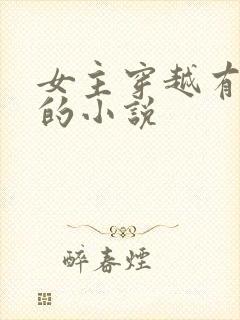 女主穿越有
的小说
醉春烟